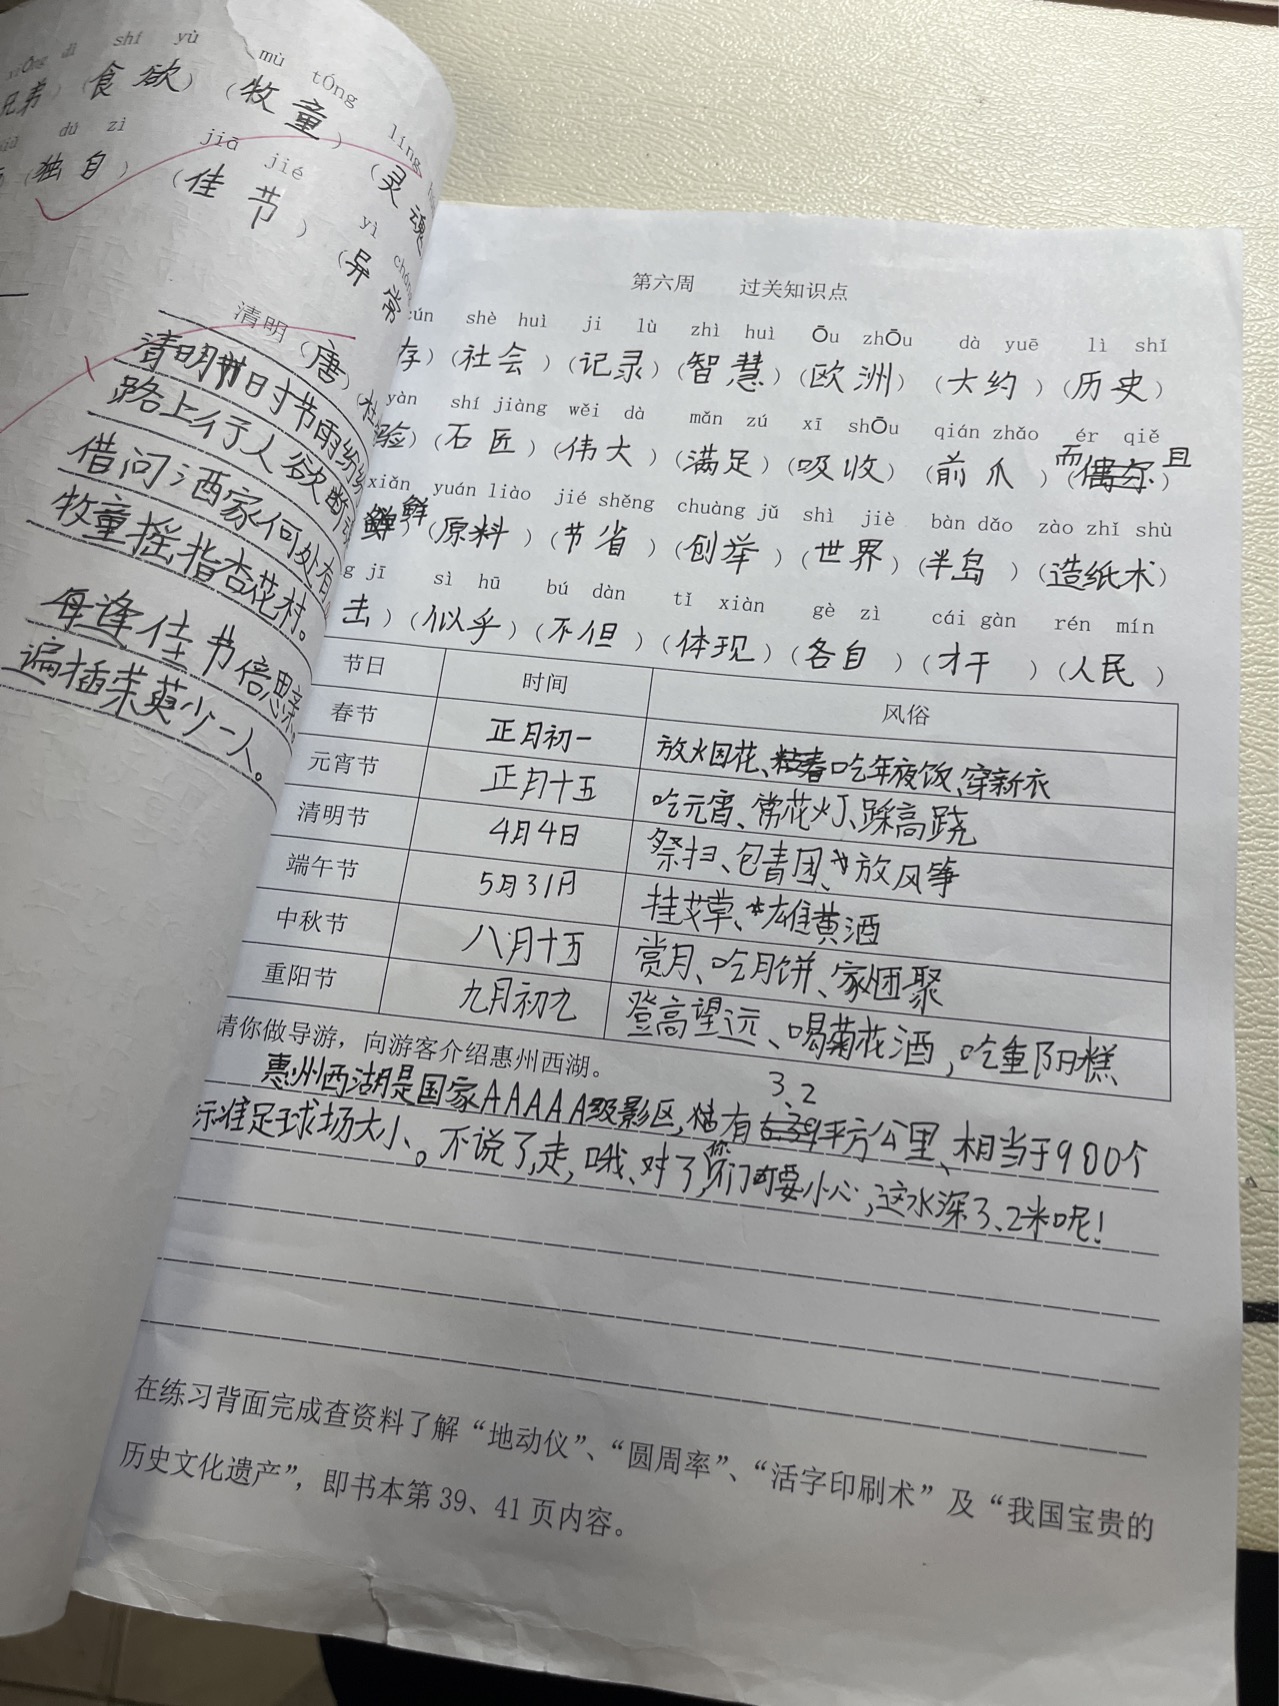 xiōng dì shí yù mù tóng
兄弟）（食欲）（牧童）
dú zì jiā jié líng
（独自）（佳节）（灵魂
yì cháng
（异常
清明（唐）杜
清明节日时节雨纷纷
路上行人欲断
借问酒家何处有
牧童摇指杏花村。
每逢佳节倍思亲
遍插茱萸少一人。
第六周 过关知识点
cún shè huì jì lù zhì huì Ōu zhŌu dà yuē lì shǐ
存）（社会）（记录）（智慧）（欧洲）（大约）（历史）
yàn shí jiàng wěi dà mǎn zú xī shŌu qián zhǎo ér qiě
验）（石匠）（伟大）（满足）（吸收）（前爪）（而且）
xiǎn yuán liào jié shěng chuàng jǔ shì jiè bàn dǎo zào zhǐ shù
鲜）（原料）（节省）（创举）（世界）（半岛）（造纸术）
g jī sì hū bú dàn tǐ xiàn gè zì cái gàn rén mín
击）（似乎）（不但）（体现）（各自）（才干）（人民）
节日 时间 风俗
春节 正月初一 放烟花、吃年夜饭、穿新衣
元宵节 正月十五 吃元宵、常花灯、踩高跷
清明节 4月4日 祭扫、包青团、放风筝
端午节 5月31日 挂艾草、雄黄酒
中秋节 八月十五 赏月、吃月饼、家团聚
重阳节 九月初九 登高望远、喝菊花酒，吃重阳糕
请你做导游，向游客介绍惠州西湖。
惠州西湖是国家AAAAA级影区，有3.2平方公里、相当于900个
标准足球场大小。不说了，走，哦、对了，你们可要小心，这水深3.2米呢！
在练习背面完成查资料了解“地动仪”、“圆周率”、“活字印刷术”及“我国宝贵的
历史文化遗产”，即书本第39、41页内容。